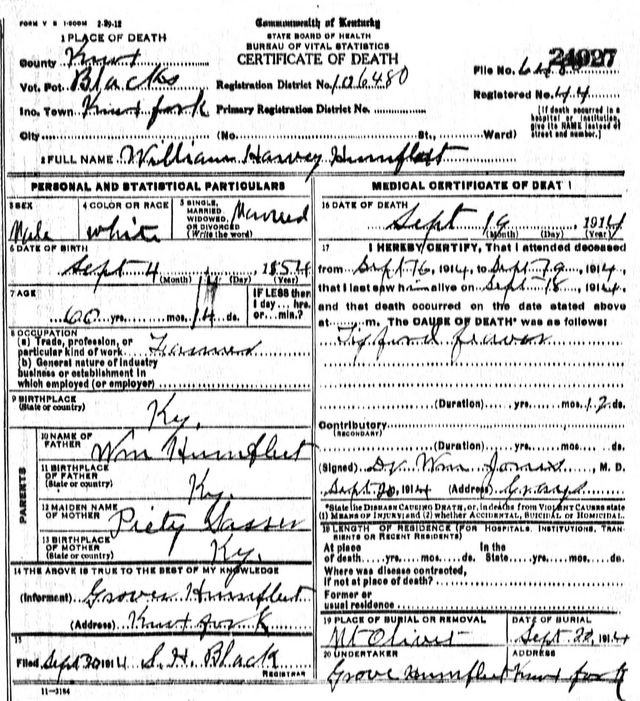 FORM V S 1-500M 2-29-12
Commonwealth of Kentucky
STATE BOARD OF HEALTH
BUREAU OF VITAL STATISTICS
CERTIFICATE OF DEATH
24027
1 PLACE OF DEATH
County Knox
Vot. Pct. Blacks
Inc. Town Knox fork
City (No. St., Ward)
Registration District No. 106480
Primary Registration District No.
File No.
Registered No. 44
[If death occurred in a hospital or institution, give its NAME instead of street and number.]
2 FULL NAME William Harvey Humfleet
PERSONAL AND STATISTICAL PARTICULARS
3 SEX
Male
4 COLOR OR RACE
White
5 SINGLE, MARRIED WIDOWED, OR DIVORCED (Write the word)
Married
6 DATE OF BIRTH
Sept 4, 1854
(Month) (Day) (Year)
7 AGE
60 yrs. mos. 14 ds.
IF LESS than 1 day... hrs. or... min.?
8 OCCUPATION
(a) Trade, profession, or particular kind of work Farmer
(b) General nature of industry business or establishment in which employed (or employer)
9 BIRTHPLACE
(State or country) Ky.
PARENTS
10 NAME OF FATHER Wm Humfleet
11 BIRTHPLACE OF FATHER
(State or country) Ky.
12 MAIDEN NAME OF MOTHER Piety Sasser
13 BIRTHPLACE OF MOTHER
(State or country) Ky.
14 THE ABOVE IS TRUE TO THE BEST OF MY KNOWLEDGE
(Informant) Grover Humfleet
(Address) Knox fork K
15
Filed Sept 20 1914 S. H. Black
REGISTRAR
11-3184
MEDICAL CERTIFICATE OF DEAT
16 DATE OF DEATH
Sept 19, 1914
(Month) (Day) (Year)
17 I HEREBY CERTIFY, That I attended deceased
from Sept 16, 1914, to Sept 19, 1914,
that I last saw him alive on Sept 18, 1914,
and that death occurred on the date stated above
at m. The CAUSE OF DEATH* was as follows:
Tyford feaver
(Duration) yrs. mos. 12 ds.
Contributory
(SECONDARY)
(Duration) yrs. mos. ds.
(Signed) Dr Wm Jones, M. D.
Sept 20, 1914 (Address) Grays
*State the DISEASE CAUSING DEATH, or, in deaths from VIOLENT CAUSES state (1) MEANS OF INJURY; and (2) whether ACCIDENTAL, SUICIDAL or HOMICIDAL.
18 LENGTH OF RESIDENCE (FOR HOSPITALS, INSTITUTIONS, TRANSIENTS OR RECENT RESIDENTS)
At place of death yrs. mos. ds. In the State yrs. mos. ds.
Where was disease contracted,
If not at place of death?
Former or
usual residence
19 PLACE OF BURIAL OR REMOVAL
Mt Olivet
DATE OF BURIAL
Sept 20, 1914
20 UNDERTAKER
Grove Humfleet
ADDRESS
Knox fork K